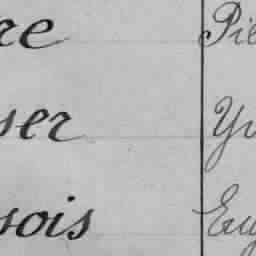 re Pie
ser Yv
sois Eug